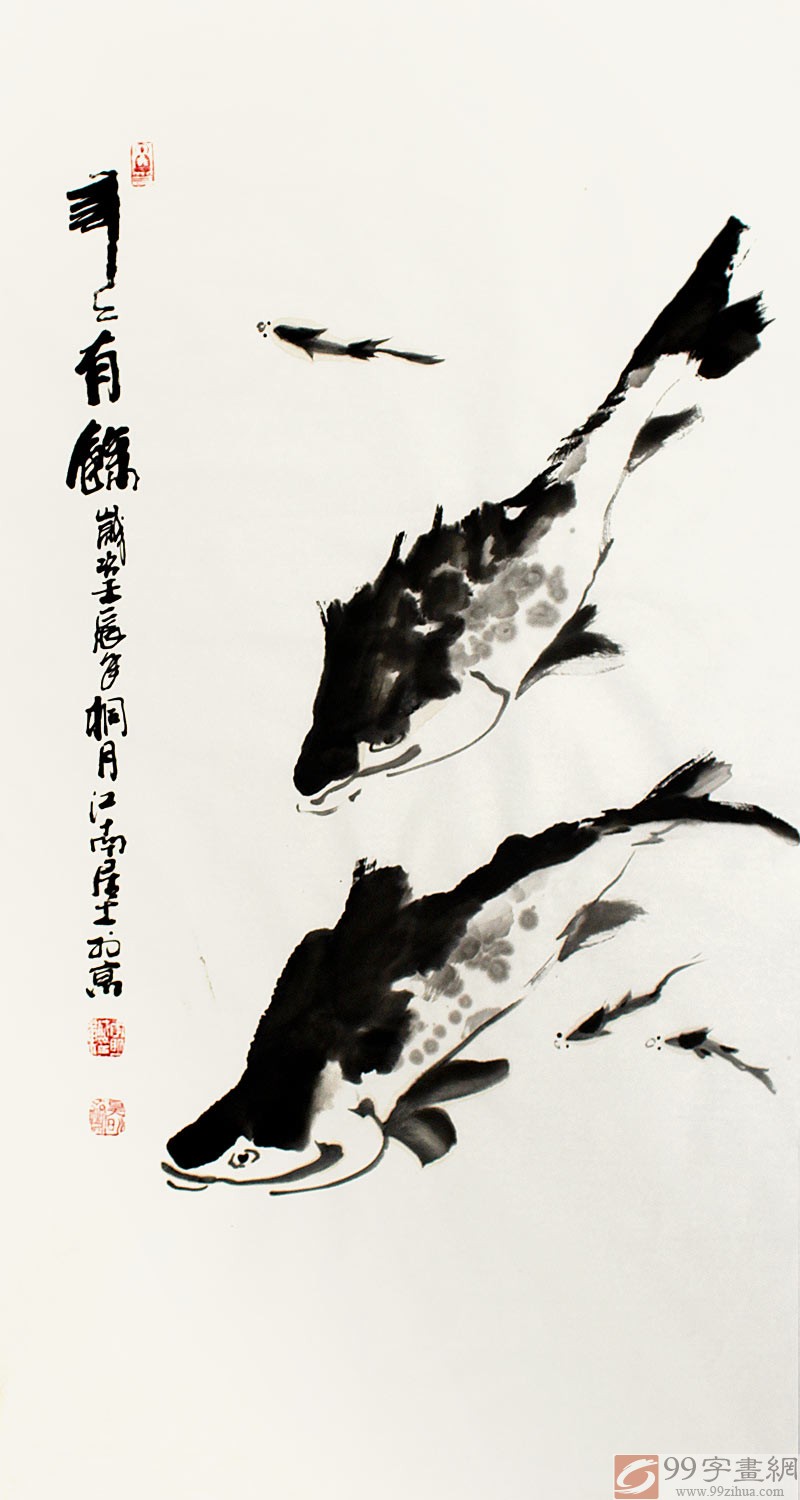 年々有餘
歲次壬辰年桐月江南居士於京
99字畫網
www.99zihua.com